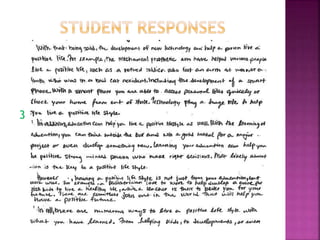 STUDENT RESPONSES
With that being said, the development of new technology can help a person live a
positive life. For example, the Mechanical prosthetic arm have helped various people
live a positive life, such as a retired soldier who lost an arm at war or a
who was in a bad car accident, including the development of a smart
phone. With a smart phone you are able to access personal files quickly or
check your home from out of state. Technology play a huge role to help
3 you live a positive life style.
In addition, education can help you live a positive lifestyle as well. With the learning of
education, you can think outside the box and use a good for a major
project or even develop something new. Learning your education can help you
be positive. Strong minded person who make right decisions. Most likely
is the key to a positive life style.
However, having a positive life style is not just from your education, but
work
a healthy life, while a teacher is there to better you for your
future. There are countless jobs out in the world that will help you
have a positive future.
In all, there are numerous ways to live a positive life style with
what you have learned. From helping kids, to developments or even